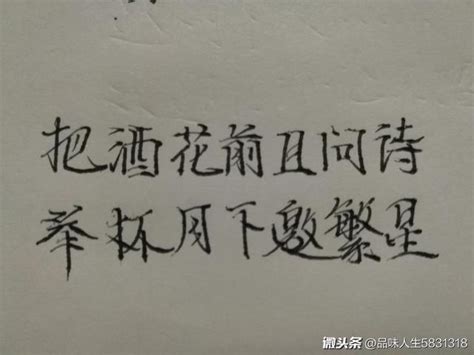 把酒花前且问诗
举杯月下邀繁星
微头条 @品味人生5831318